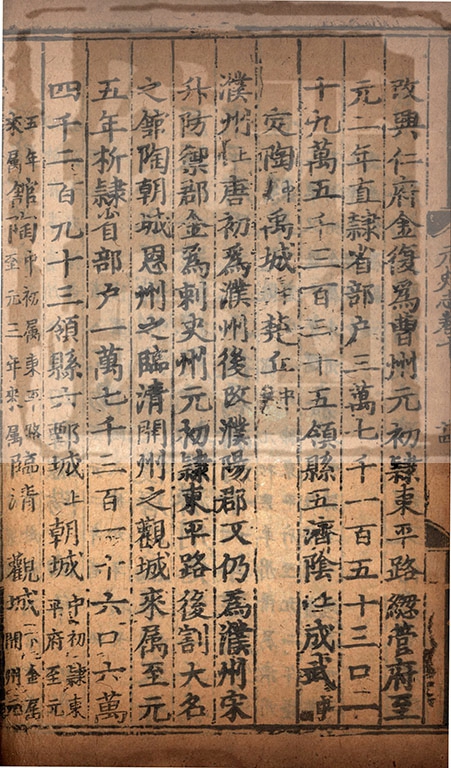 改興仁府金復為曹州元初隷東平路緫管府至
元二年直隷省部户三萬七千一百五十三口一
十九萬五千三百三十五領縣五濟陰上成武中
定陶中禹城中楚丘中
濮州上唐初為濮州後改濮陽郡又仍為濮州宋
升防禦郡金為刺史州元初隷東平路後割大名
之館陶朝城恩州之臨清開州之觀城來属至元
五年析隷省部户一萬七千三百一十六口六萬
四千二百九十三領縣六鄄城上朝城中初隷東平府至元
五年來属館陶中初属東平路至元三年來属臨清觀城下金属開州元